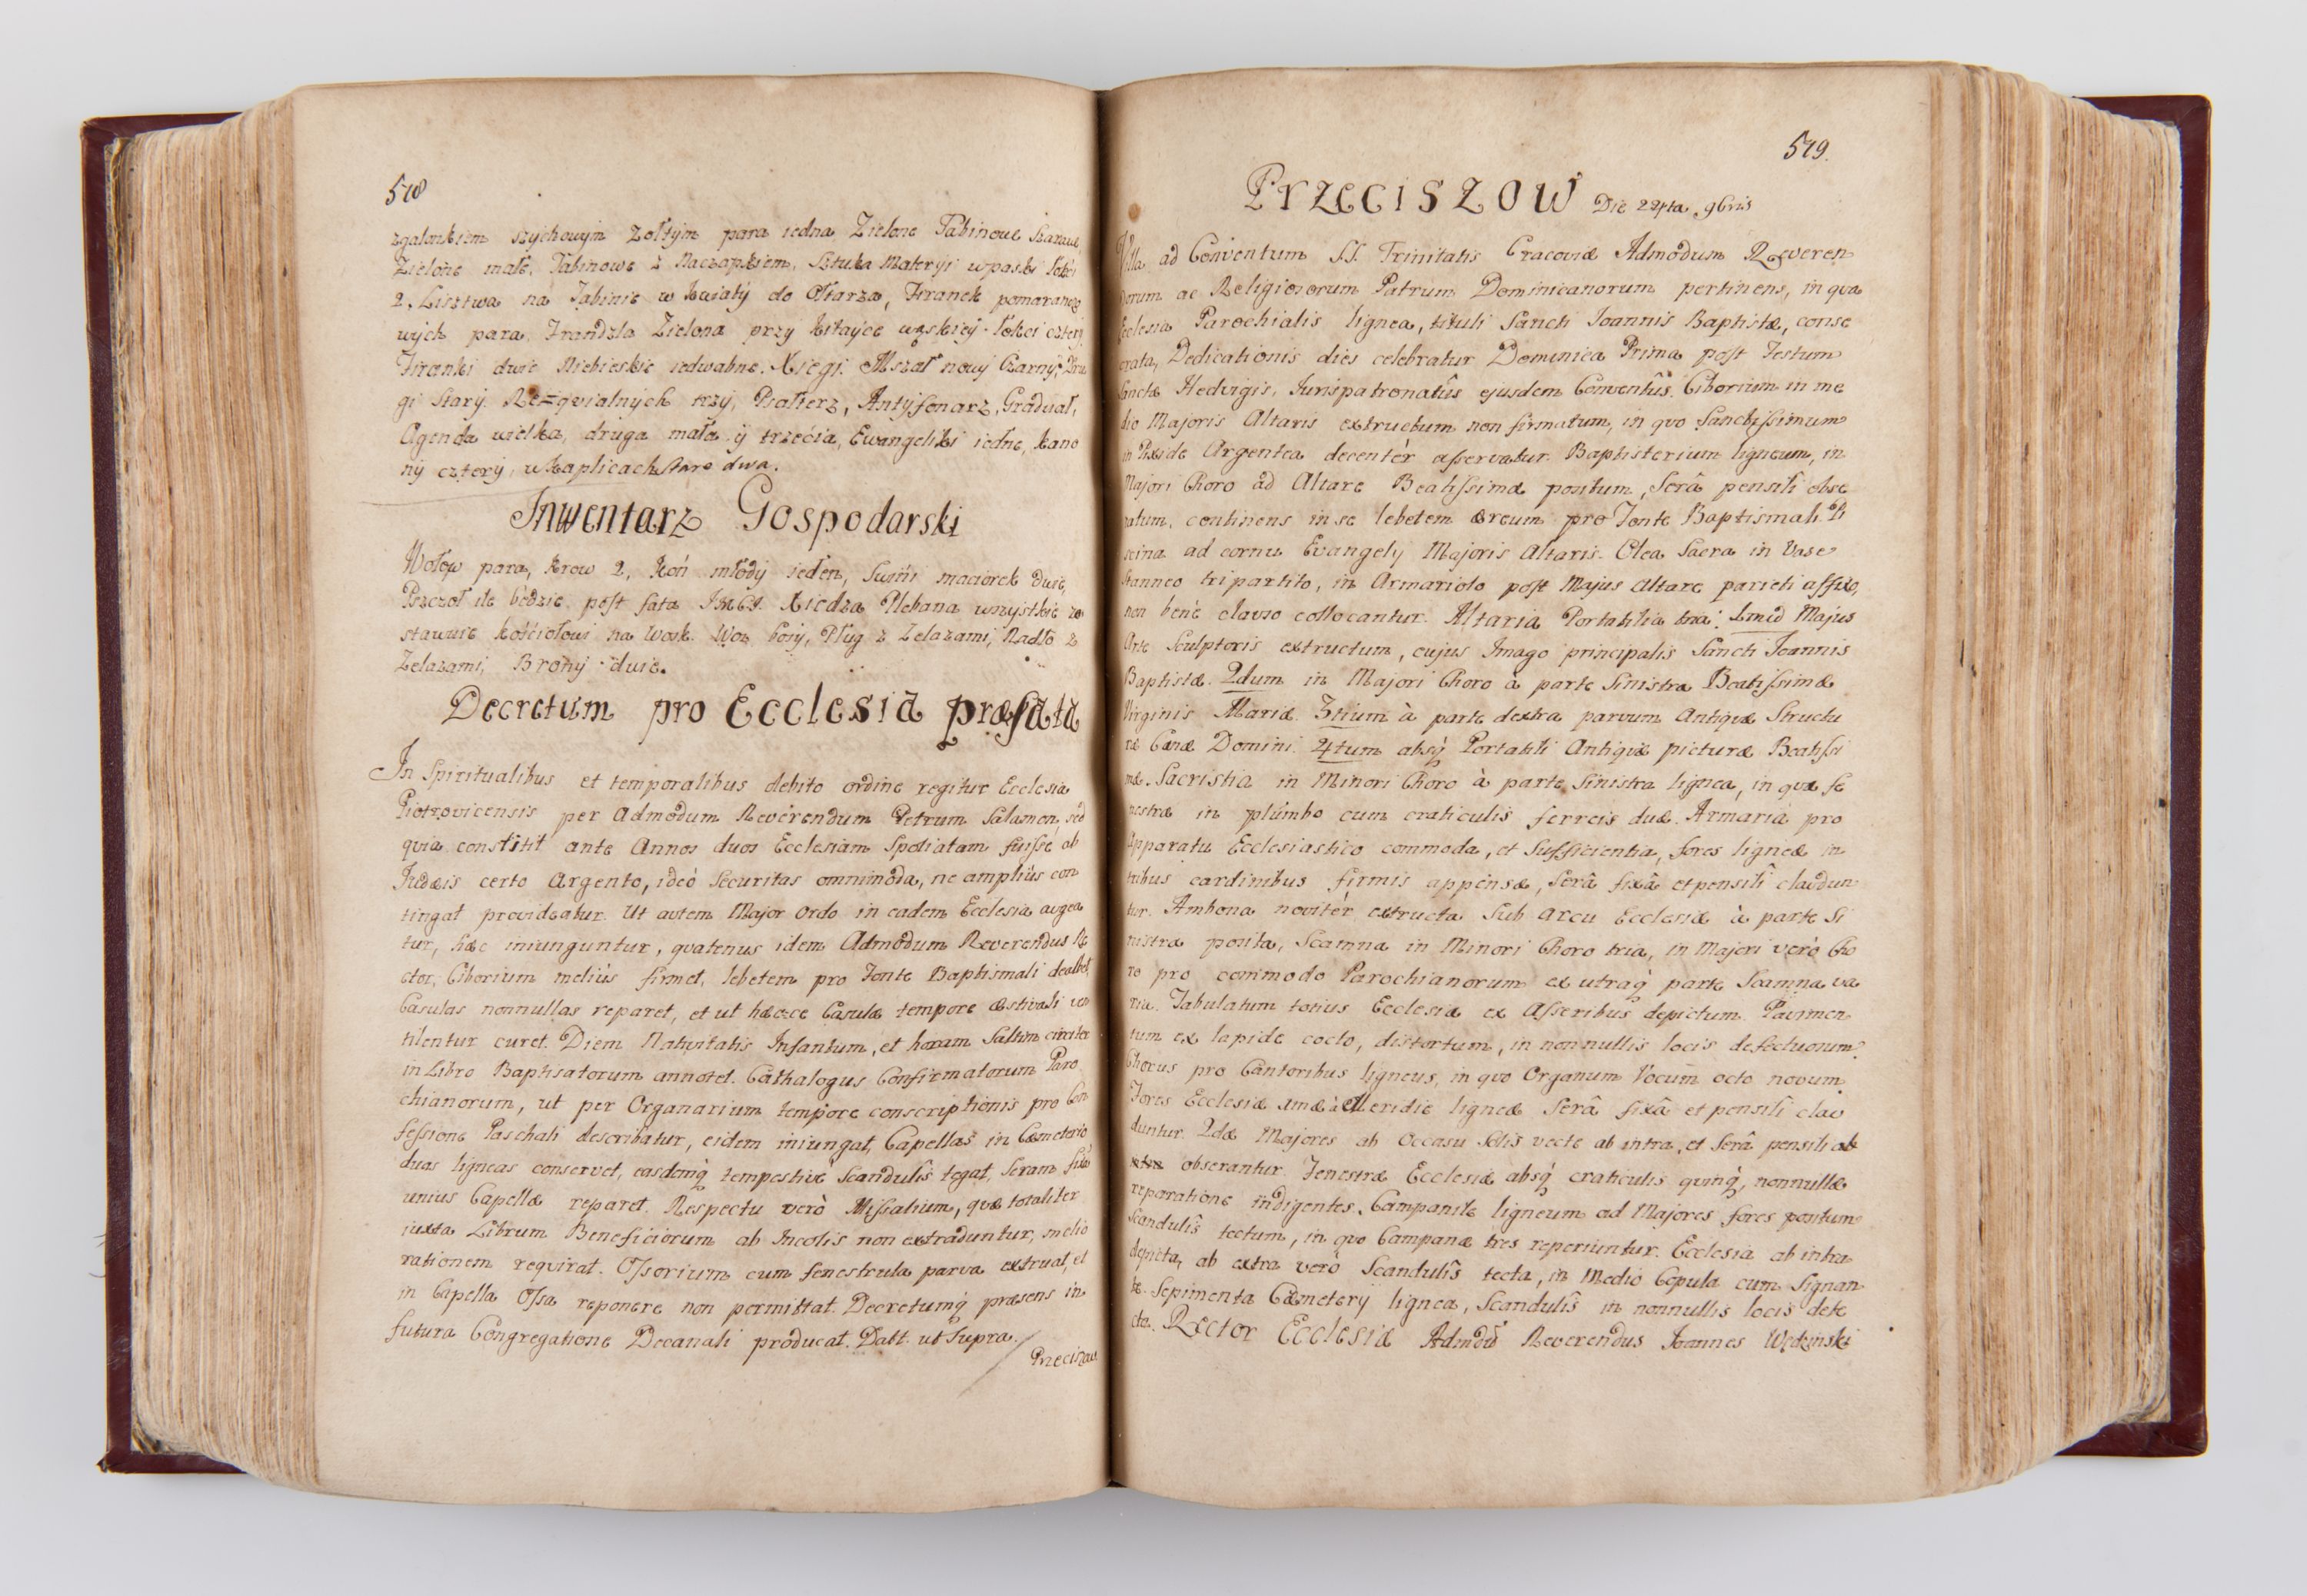 578
zgalonkiem szychowym zołtym para iedna Zielone Tabinowe
Zielone małe, Tabinowe z Naczapkiem, Sztuka Materyi wpaski łokci
2. Lisztwa na Tabinie w kwiaty do Ołtarza, Firanek pomarancz
wych para, Frandzla Zielona przy kitayce wąskiey łokci cztery,
Firanki dwie Niebieskie iedwabne. Xięgi. Mszał nowy Czarny, Dru
gi Stary. Reqvialnych trzy, Psałterz, Antyfonarz, Graduał,
Agenda wielka, druga mała y trzecia, Ewangeliki iedne, kano
ny cztery, w kaplicach stare dwa.
Inwentarz Gospodarski
Wołow para, krow 2, koń młody ieden, Swini maciorek dwie,
Pszczoł ile będzie post fata Xiedza Plebana wszystkie zo
stawuie kościołowi na Wosk. Woz bosy, Pług z Zelazami, Radło z
Zelazami, Brony dwie.
Decretum pro Ecclesia præfata
In Spiritualibus et temporalibus debito ordine regitur Ecclesia
Piotrovicensis per Admodum Reverendum Petrum Salamon, sed
quia constitit ante Annos duos Ecclesiam Spoliatam fuisse ab
Judæis certo Argento, ideò Securitas omnimoda, ne ampliùs con
tingat provideatur. Ut autem Major Ordo in eadem Ecclesia augea
tur, hæc iniunguntur, quatenus idem Admodum Reverendus Re
ctor, Ciborium meliùs firmet, lebetem pro Fonte Baptismali dealbet,
Casulas nonnullas reparet, et ut hæcce Casulæ tempore æstivali ven
tilentur curet. Diem Nativitatis Infantum, et horam Saltim circiter
in Libro Baptisatorum annotet. Cathalogus Confirmatorum Paro
chianorum, ut per Organarium tempore conscriptionis pro Con
fessione Paschali describatur, eidem iniungat, Capellas in Cæmeterio
duas ligneas conservet, easdemq́ tempestivè Scandulis tegat, Seram fixã
unius Capellæ reparet. Respectu verò Missalium, quæ totaliter
iuxta Librum Beneficiorum ab Incolis non extraduntur, melio
rationem requirat. Ossorium cum fenestrula parva extruat, et
in Capella Ossa reponere non permittat. Decretumq́ præsens in
futura Congregatione Decanali producat. Datt. ut Supra.
Przeciszow
579.
PRZECISZOW Die 24ta 9bris
Villa ad Conventum SS. Trinitatis Cracoviæ Admodum Reveren
dorum ac Religiosorum Patrum Dominicanorum pertinens, in qva
Ecclesia Parochialis lignea, tituli Sancti Joannis Baptistæ, conse
crata, Dedicationis dies celebratur Dominica Prima post Festum
Sanctæ Hedvigis, Jurispatronatûs ejusdem Conventûs. Ciborium in me
dio Majoris Altaris extructum non firmatum, in qvo Sanctissimum
in Pixide Argentea decentèr asservatur. Baptisterium ligneum, in
Majori Choro ad Altare Beatissimæ positum, Serâ pensili obse
ratum, continens in se lebetem æreum pro Fonte Baptismali. Pi
scina ad cornu Evangelij Majoris Altaris. Olea Sacra in Vase
Stanneo tripartito, in Armariolo post Majus Altare parieti affixo,
non benè clauso collocantur. Altaria Portatilia tria: 1mũ Majus
Arte Sculptoris extructum, cujus Imago principalis Sancti Joannis
Baptistæ. 2dum in Majori Choro à parte Sinistra Beatissimæ
Virginis Mariæ. 3tium à parte dextra parvum Antiqvæ Structu
ræ Cænæ Domini. 4tum absq́ Portatili Antiqvæ picturæ Beatissi
mæ. Sacristia in Minori Choro à parte Sinistra lignea, in qva fe
nestræ in plumbo cum craticulis ferreis duæ. Armaria pro
Apparatu Ecclesiastico commoda, et Sufficientia, fores ligneæ in
tribus cardinibus firmis appensæ, Serâ fixâ et pensili claudun
tur. Ambona novitèr extructa Sub arcu Ecclesiæ à parte Si
nistra posita, Scamna in Minori Choro tria, in Majori verò Cho
ro pro commodo Parochianorum ex utraq́ parte Scamna va
ria. Tabulatum totius Ecclesiæ ex Asseribus depictum. Pavimen
tum ex lapide cocto, distortum, in nonnullis locis defectuosum.
Chorus pro Cantoribus ligneus, in qvo Organum Vocum octo novum.
Fores Ecclesiæ 1mæ à Meridie ligneæ Serâ fixâ et pensili clau
duntur. 2dæ Majores ab Occasu Solis vecte ab intra, et Serâ pensili ab
extra obserantur. Fenestræ Ecclesiæ absq́ craticulis qvinq́, nonnullæ
reparatione indigentes. Campanile ligneum ad Majores fores positum
Scandulis tectum, in quo Campanæ tres reperiuntur. Ecclesia ab intra
depicta, ab extra verò Scandulis tecta, in Medio Copula cum Signan
te. Sepimenta Cæmeterij lignea, Scandulis in nonnullis locis dete
cta. Rector Ecclesiæ Admdũ Reverendus Joannes